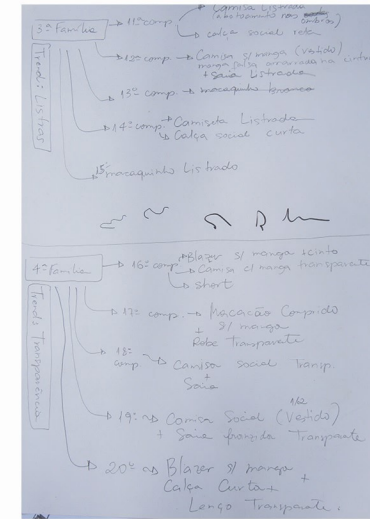 3ª Família
11º comp
Camisa Listrada
(abotoamento nos ombros)
calça social reta
12º comp. Camisa s/ manga (vestido)
manga falsa amarrada na cintura
+ Saia Listrada
13º comp. macaquinho branco
14º comp. + Camiseta Listrada
Calça social curta
15º macaquinho Listrado
Trend: Listras
4ª Família
16º comp. Blazer s/ manga
Camisa c/ manga transparente
short
17º comp. Macacão Comprido
s/ manga
+
Robe Transparente
18º comp
Camisa social Transp.
+
Saia
19º Camisa Social (Vestido) 1/2
+ Saia franzida Transparente
20º Blazer s/ manga
+
Calça Curta +
Lenço Transparente.
Trend: Transparência